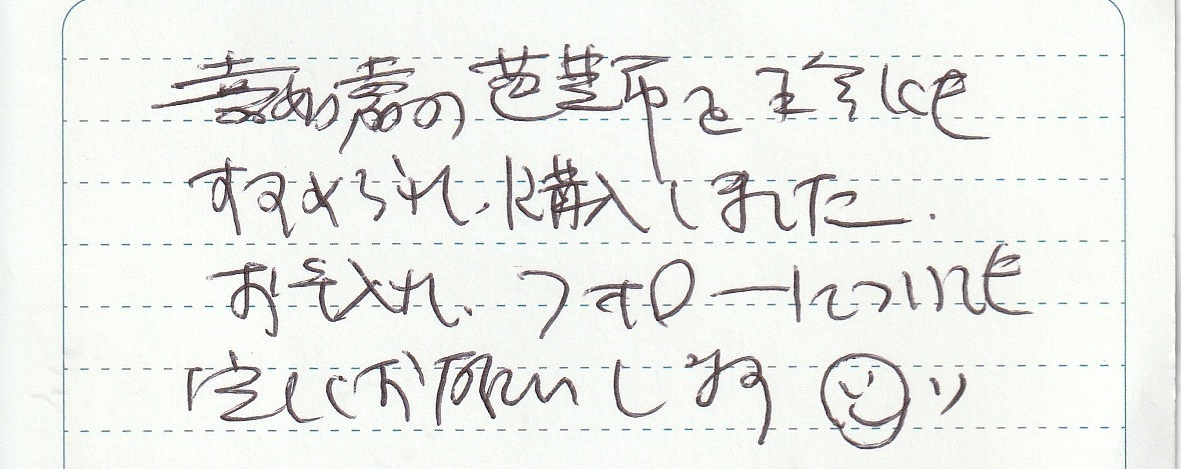 喜如嘉の芭蕉布をにも
すすめられ、購入しました.
お手入れ、フォローについても
宜しくお願いします